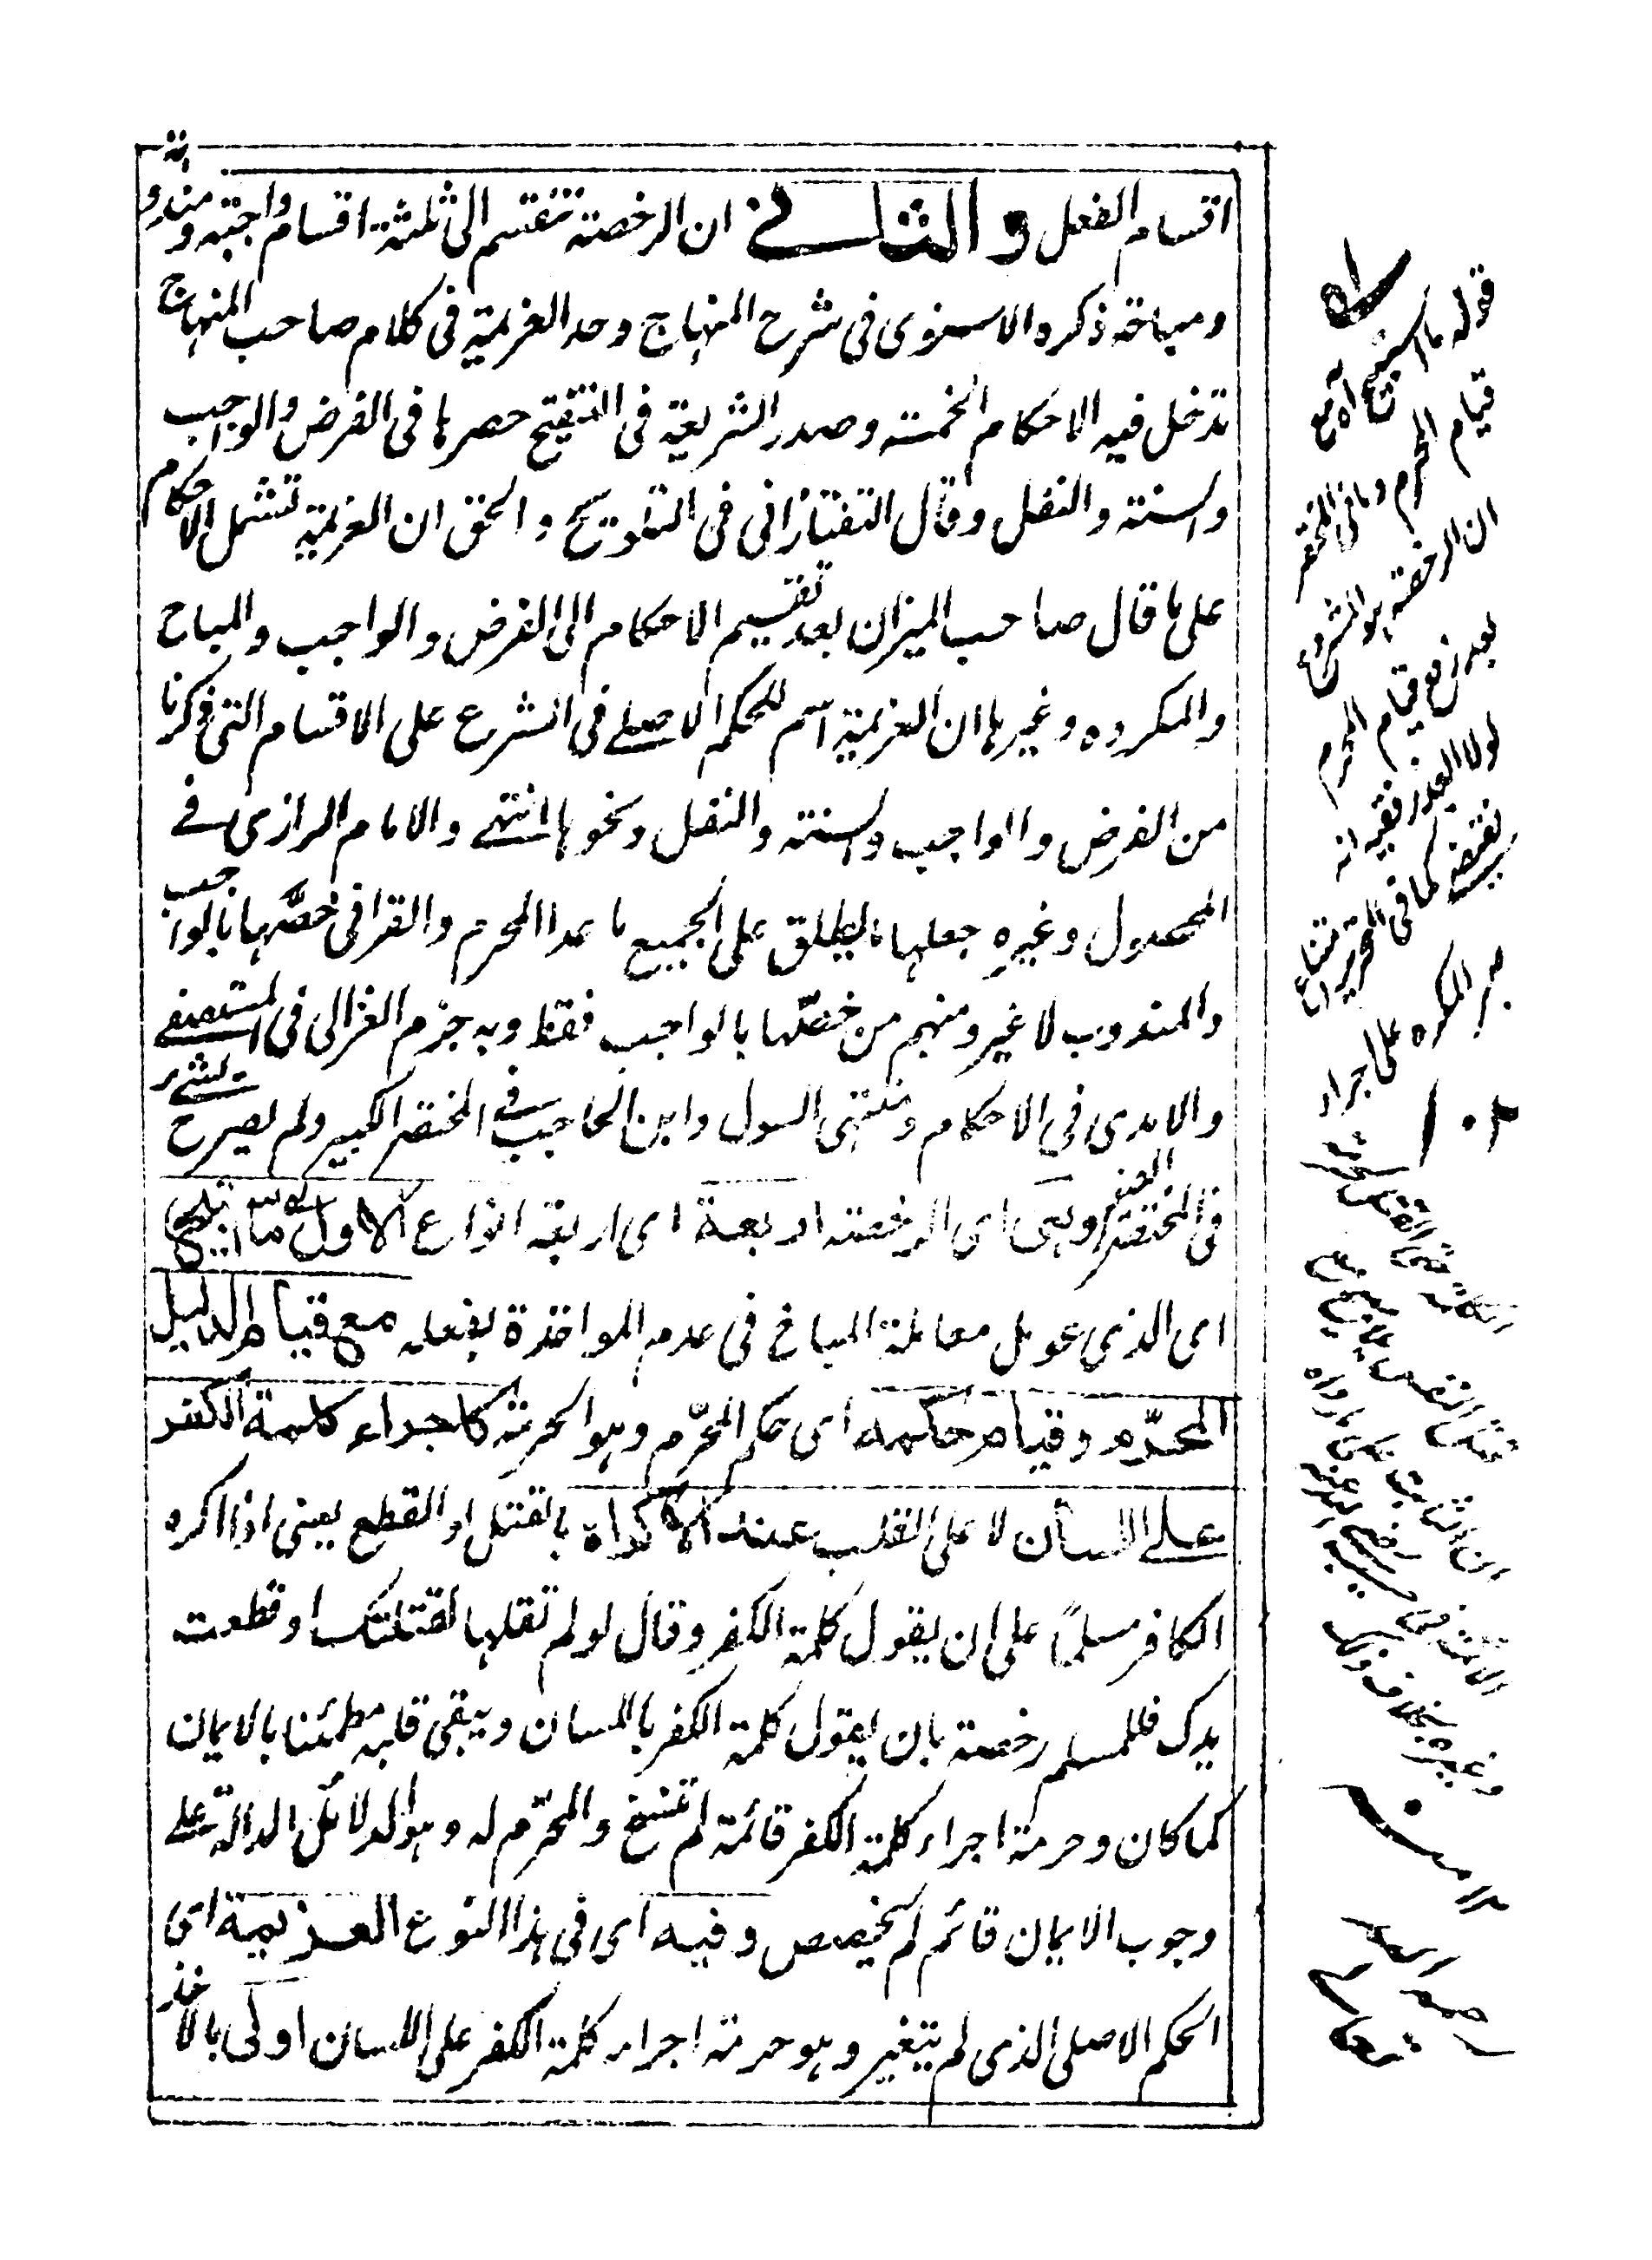 اقسام الفعل والثانے ان الرخصة تنقسم الى ثلثة اقسام واجبة ومندوبة
ومباحة ذكره الاسنوى فى شرح المنهاج وحد العزيمة فى كلام صاحب المنهاج
تدخل فيه الاحكام الخمسة وصدر الشريعة فى التنقيح حصرها فى الفرض والواجب
والسنة والنفل وقال التفتازانى فى التلويح والحق ان العزيمة تشمل الاحكام
على ما قال صاحب الميزان بعد تقسيم الاحكام الى الفرض والواجب والمباح
والمكروه وغيرها ان العزيمة اسم للحكم الاصلے فى الشرع على الاقسام التى ذكرنا
من الفرض والواجب والسنة والنفل ونحوها انتهے والامام الرازى فے
المحصول وغيره جعلها تطلق على الجميع ما عدا المحرم والقرافى خصّها بالواجب
والمندوب لا غير ومنهم من خصّها بالواجب فقط وبه جزم الغزالى فى المستصفے
والامدى فى الاحكام ومنتهى السول وابن الحاجب فے المختصر الكبير ولم يصرح بشئ
فى المختصر الصغير وهى اى الرخصة اربعة اى اربعة انواع الاول ما استبيح
اى الذى عومل معاملة المباح فى عدم المواخذة بفعله مع قيام الدليل
المحرّم وقيام حكمه اى حكم المحرّم وهو الحرمة كاجراء كلمة الكفر
علے اللسان لا على القلب عند الاكراه بالقتل او القطع يعنى اذا اكره
الكافر مسلمًا على ان يقول كلمة الكفر وقال لو لم تقلها لقتلتك او قطعت
يدك فللمسلم رخصة بان يقول كلمة الكفر باللسان ويبقى قلبه مطمئنا بالايمان
كما كان وحرمة اجراء كلمة الكفر قائمة لم تنسخ والمحرّم له وهو الدلائل الدالّة علے
وجوب الايمان قائم لم يخصص وفيه اى فى هذا النوع العزيمة اى
الحكم الاصلى الذى لم يتغير وهو حرمة اجراء كلمة الكفر على اللسان اولى بالاخذ
قوله ما استبيح آه مع
قيام المحرم وما فى المختصر
ان الرخصة هو المشروع
بعذر مع قيام المحرم
لولا العذر ففيه انه
يقتضى كما فى التحرير امتناع
صبر المكره على اجراء